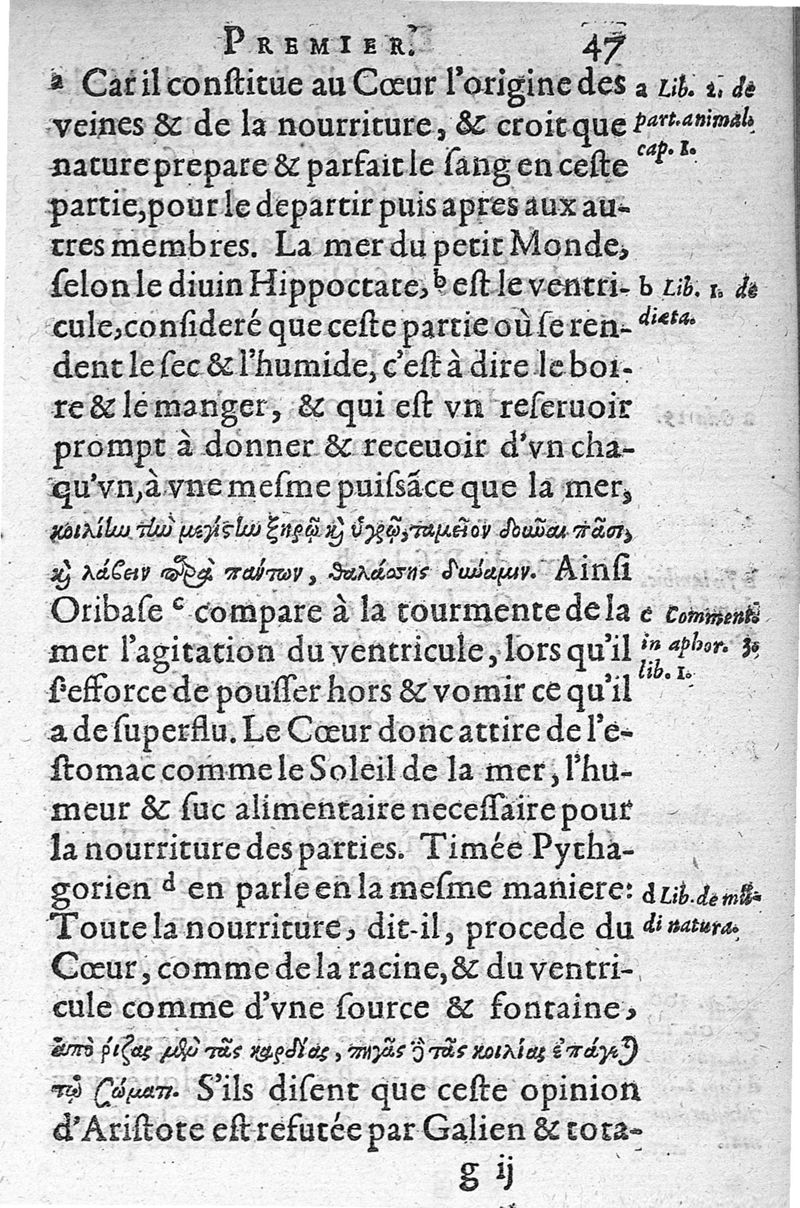 PREMIER. 47
ᵃ Car il conſtitue au Cœur l'origine des
veines & de la nourriture, & croit que
nature prepare & parfait le ſang en ceſte
partie, pour le departir puis apres aux au-
tres membres. La mer du petit Monde,
ſelon le diuin Hippocrate, ᵇ eſt le ventri-
cule, conſideré que ceſte partie où ſe ren-
dent le ſec & l'humide, c'eſt à dire le boi-
re & le manger, & qui eſt vn reſeruoir
prompt à donner & receuoir d'vn cha-
qu'vn, à vne meſme puiſsãce que la mer,
κοιλίην τὴν μεγίστην ξηρῷ καὶ ὑγρῷ, ταμεῖον δοῦναι πᾶσι,
καὶ λάβειν παρὰ πάντων, θαλάσσης δύναμιν. Ainſi
Oribaſe ᶜ compare à la tourmente de la
mer l'agitation du ventricule, lors qu'il
s'efforce de pouſſer hors & vomir ce qu'il
a de ſuperflu. Le Cœur donc attire de l'e-
ſtomac comme le Soleil de la mer, l'hu-
meur & ſuc alimentaire neceſſaire pour
la nourriture des parties. Timée Pytha-
gorien ᵈ en parle en la meſme maniere:
Toute la nourriture, dit-il, procede du
Cœur, comme de la racine, & du ventri-
cule comme d'vne ſource & fontaine,
ἀπὸ ῥίζας μὲν τᾶς καρδίας, πηγᾶς δὲ τᾶς κοιλίας ἐπάγεται
τῷ σώματι. S'ils diſent que ceſte opinion
d'Ariſtote eſt refutée par Galien & tota-
g ij
a Lib. 2. de
part. animal.
cap. 1.
b Lib. 1. de
diæta.
c Comment.
in aphor.
lib. 1.
d Lib. de mũ-
di natura.